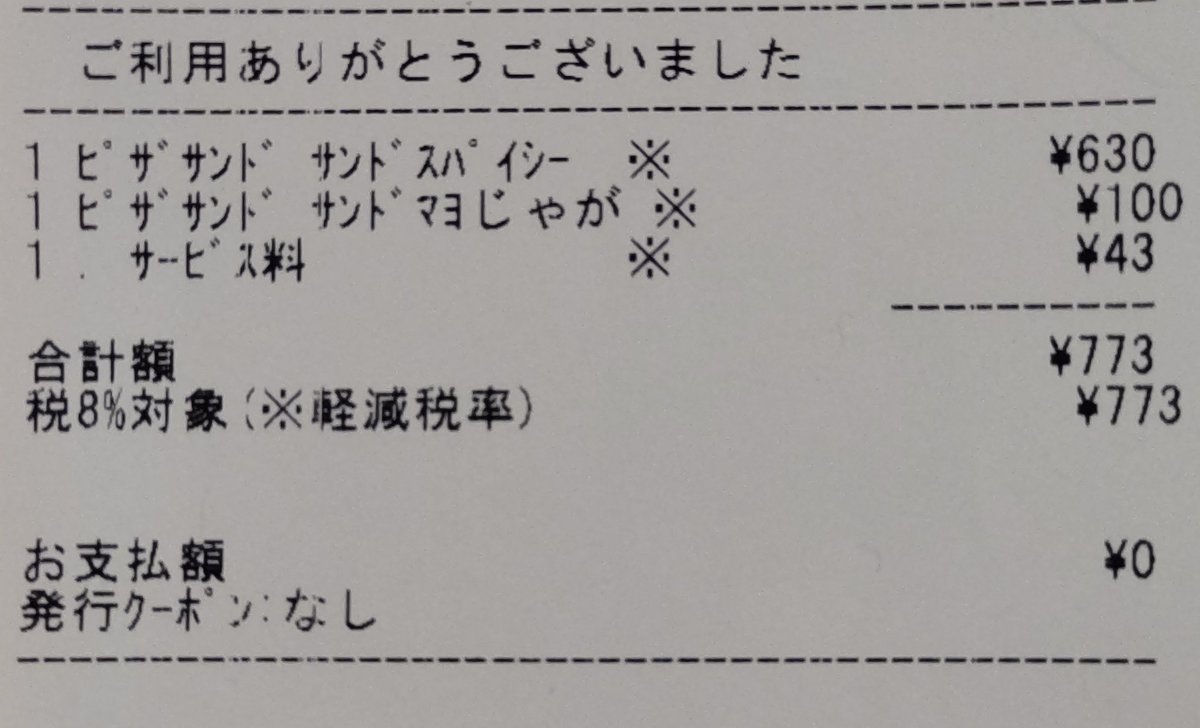 ご利用ありがとうございました
1 ﾋﾟｻﾞｻﾝﾄﾞ ｻﾝﾄﾞｽﾊﾟｲｼｰ ※ ¥630
1 ﾋﾟｻﾞｻﾝﾄﾞ ｻﾝﾄﾞﾏﾖじゃが ※ ¥100
1 . ｻｰﾋﾞｽ料 ※ ¥43
合計額 ¥773
税8%対象(※軽減税率) ¥773
お支払額 ¥0
発行ｸｰﾎﾟﾝ:なし